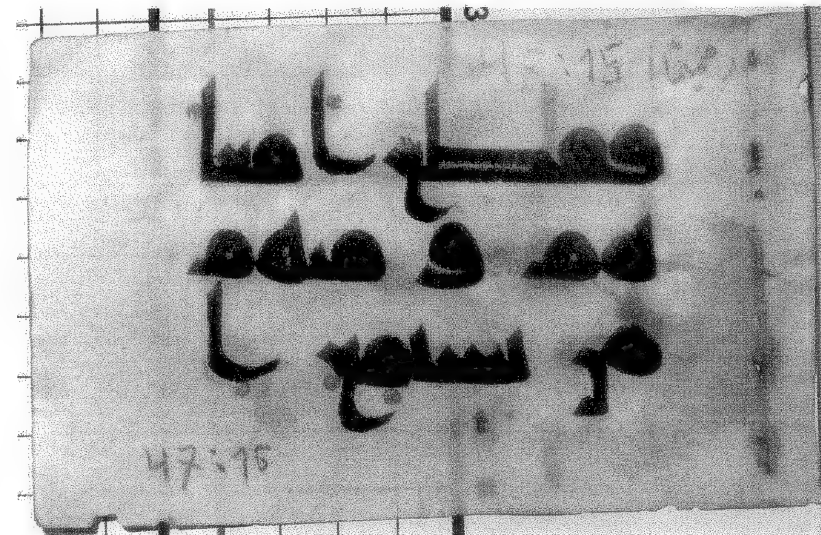 فقطع امعا
هم ومنهم
من يستمع ا
47:15